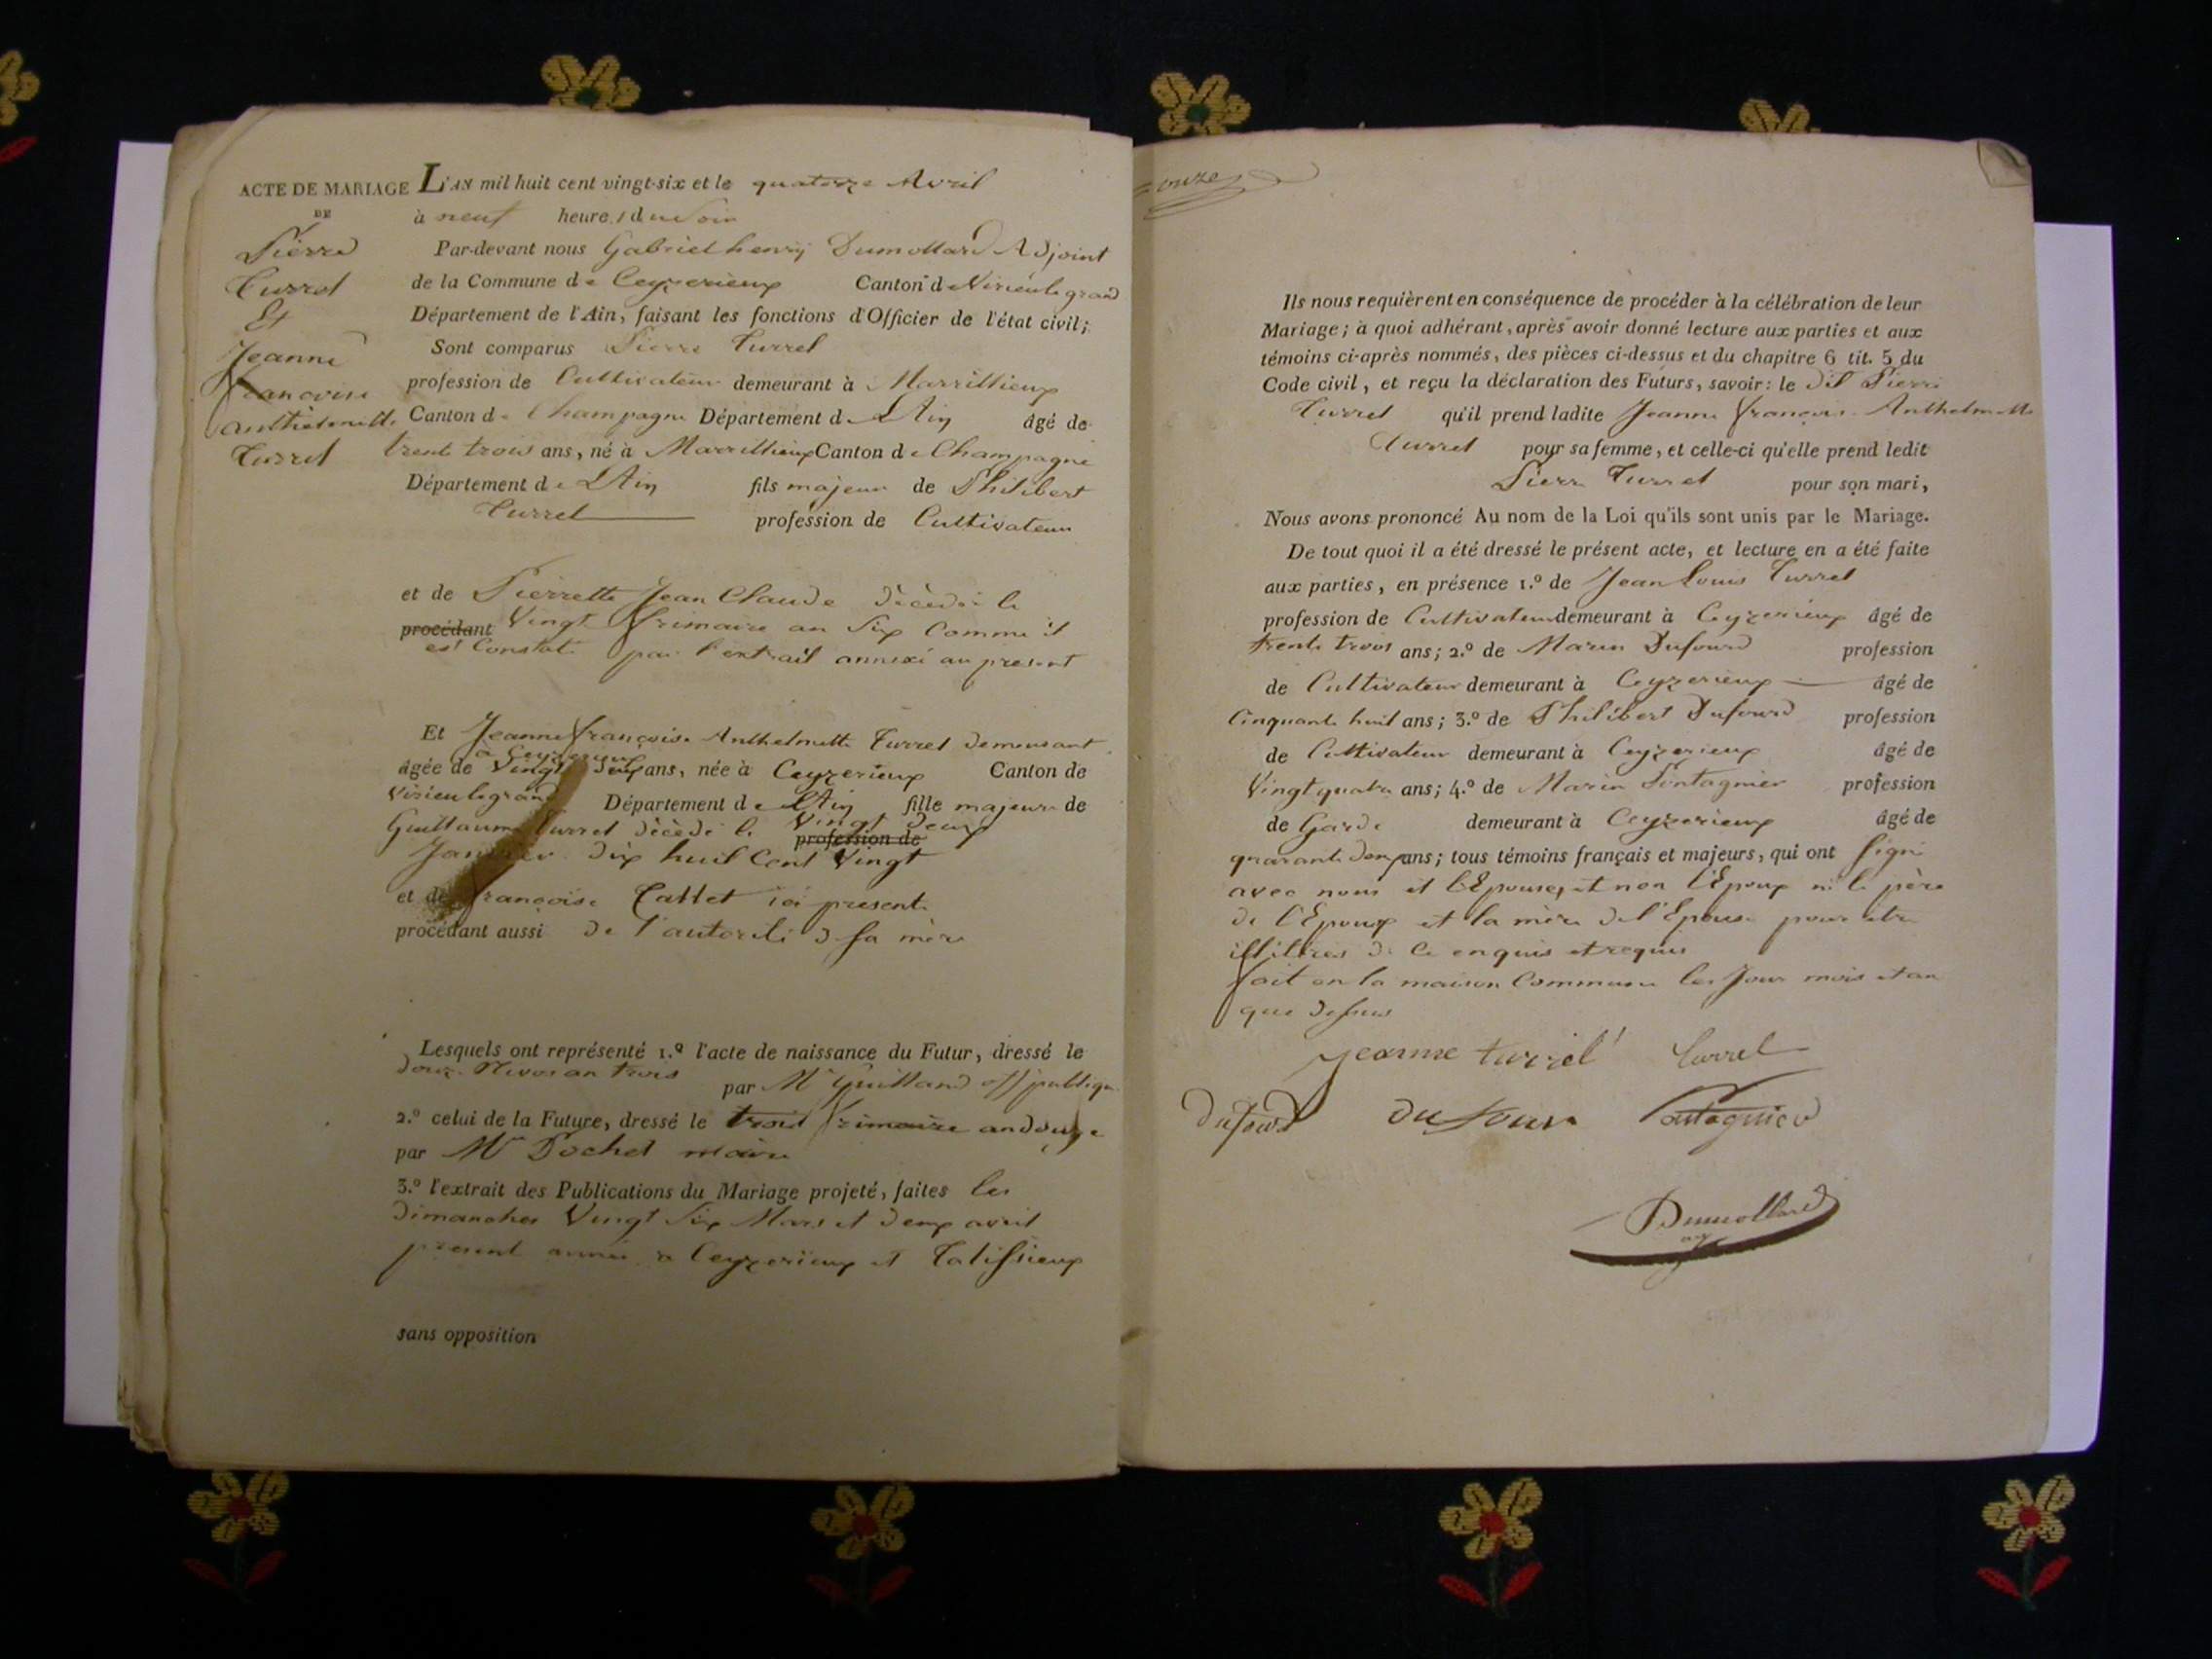 ACTE DE MARIAGE
DE
Pierre
Turrel
Et
Jeanne
francoise
anthelmette
Turrel
L'AN mil huit cent vingt-six et le quatorze Avril
à neuf heures du Soir
Par-devant nous Gabriel henrÿ Dumollard Adjoint
de la Commune de Ceyzerieux Canton de Virieulegrand
Département de l'Ain, faisant les fonctions d'Officier de l'état civil;
Sont comparus Pierre Turrel
profession de Cultivateur demeurant à Marrillieux
Canton de Champagne Département de L'Ain âgé de
trente trois ans, né à Marrillieux Canton de Champagne
Département de L'Ain fils majeur de Philibert
Turrel profession de Cultivateur
et de Pierrette Jean Claude décédée le
procédant Vingt frimaire an Six Comme il
est Constaté par l'extrait annexé au present
Et Jeanne françoise Anthelmette Turrel demeurant
à Ceyzerieux
âgée de Vingt deux ans, née à Ceyzerieux Canton de
Virieulegrand Département de L'Ain fille majeure de
Guillaume Turrel décédé le Vingt deux
profession de
Janvier dix huit Cent Vingt
et de françoise Tallet ici presente
procédant aussi de l'autorité d sa mère
Lesquels ont représenté 1.º l'acte de naissance du Futur, dressé le
douze Nivos an trois par Mr Guilland off publique
2.º celui de la Future, dressé le trois frimaire an douze
par Mr Pochet maire
3.º l'extrait des Publications du Mariage projeté, faites les
dimanches Vingt Six Mars et deux avril
present année a Ceyzerieux et Talissieux
sans opposition
onze
Ils nous requièrent en conséquence de procéder à la célébration de leur
Mariage; à quoi adhérant, après avoir donné lecture aux parties et aux
témoins ci-après nommés, des pièces ci-dessus et du chapitre 6 tit. 5 du
Code civil, et reçu la déclaration des Futurs, savoir: le dit Pierre
Turrel qu'il prend ladite Jeanne françoise Anthelmette
Turrel pour sa femme, et celle-ci qu'elle prend ledit
Pierre Turrel pour son mari,
Nous avons prononcé Au nom de la Loi qu'ils sont unis par le Mariage.
De tout quoi il a été dressé le présent acte, et lecture en a été faite
aux parties, en présence 1.º de Jean Louis Turrel
profession de Cultivateur demeurant à Ceyzerieux âgé de
trente trois ans; 2.º de Marin Dufourd profession
de Cultivateur demeurant à Ceyzerieux âgé de
Cinquante huit ans; 3.º de Philibert Dufourd profession
de Cultivateur demeurant à Ceyzerieux âgé de
Vingt quatre ans; 4.º de Marin Pontagnier profession
de Garde demeurant à Ceyzerieux âgé de
quarante deux ans; tous témoins français et majeurs, qui ont signé
avec nous et l'Epouse, et non l'Epoux ni le père
de l'Epoux et la mère de l'Epouse pour être
illitérés de ce enquis et requis
fait en la maison Commune les Jour mois et an
que dessus
Jeanne turrel turrel
Dufourd dufour Pontagnier
Dumollard